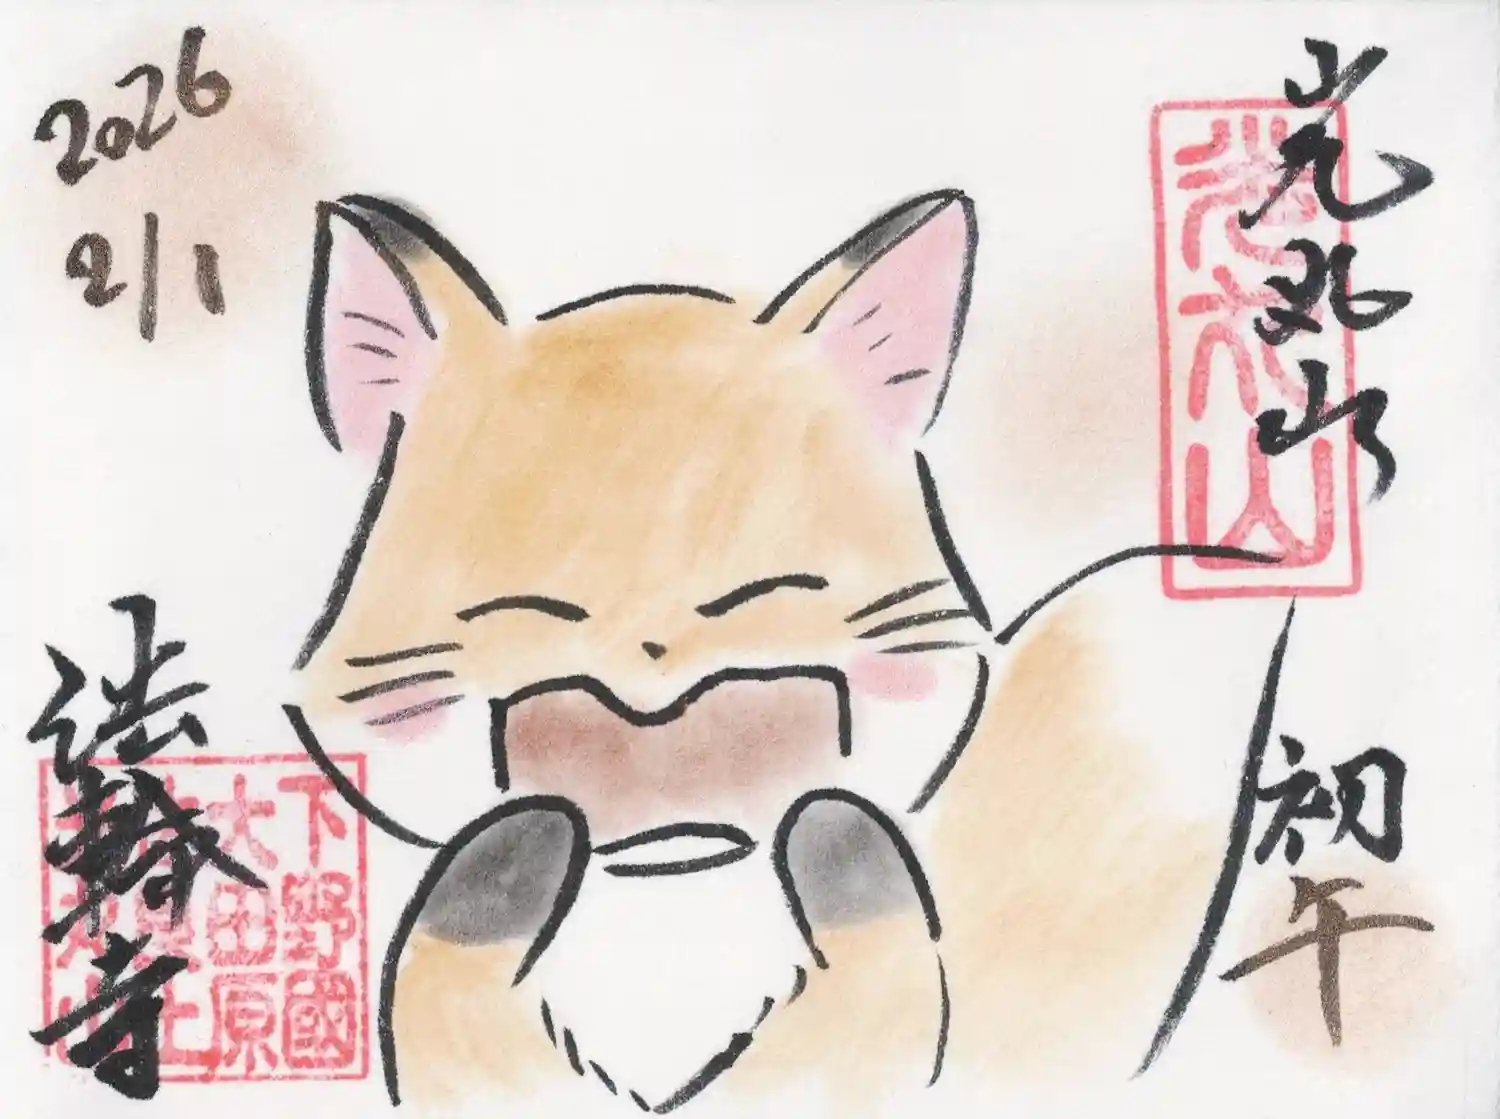 2026
2/1
光丸山
光丸山
初午
法輪寺
下野國
大田原